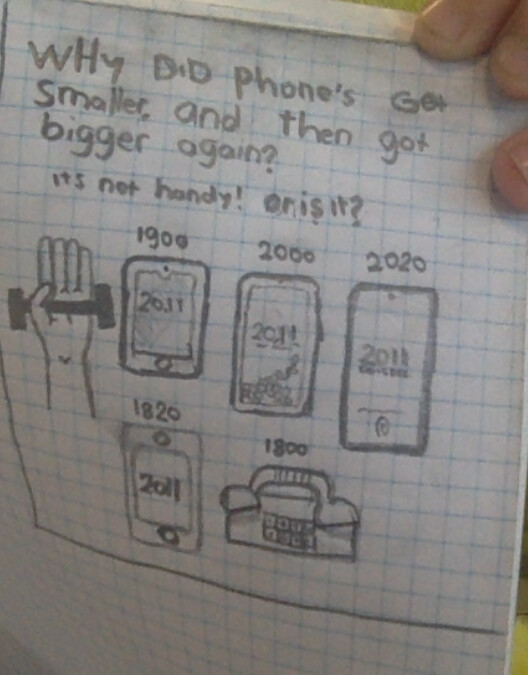 WHY DID phone's Get
smaller, and then got
bigger again?
it's not handy! or is it?
1900
2000
2020
2011
2011
2011
1820
1800
2011